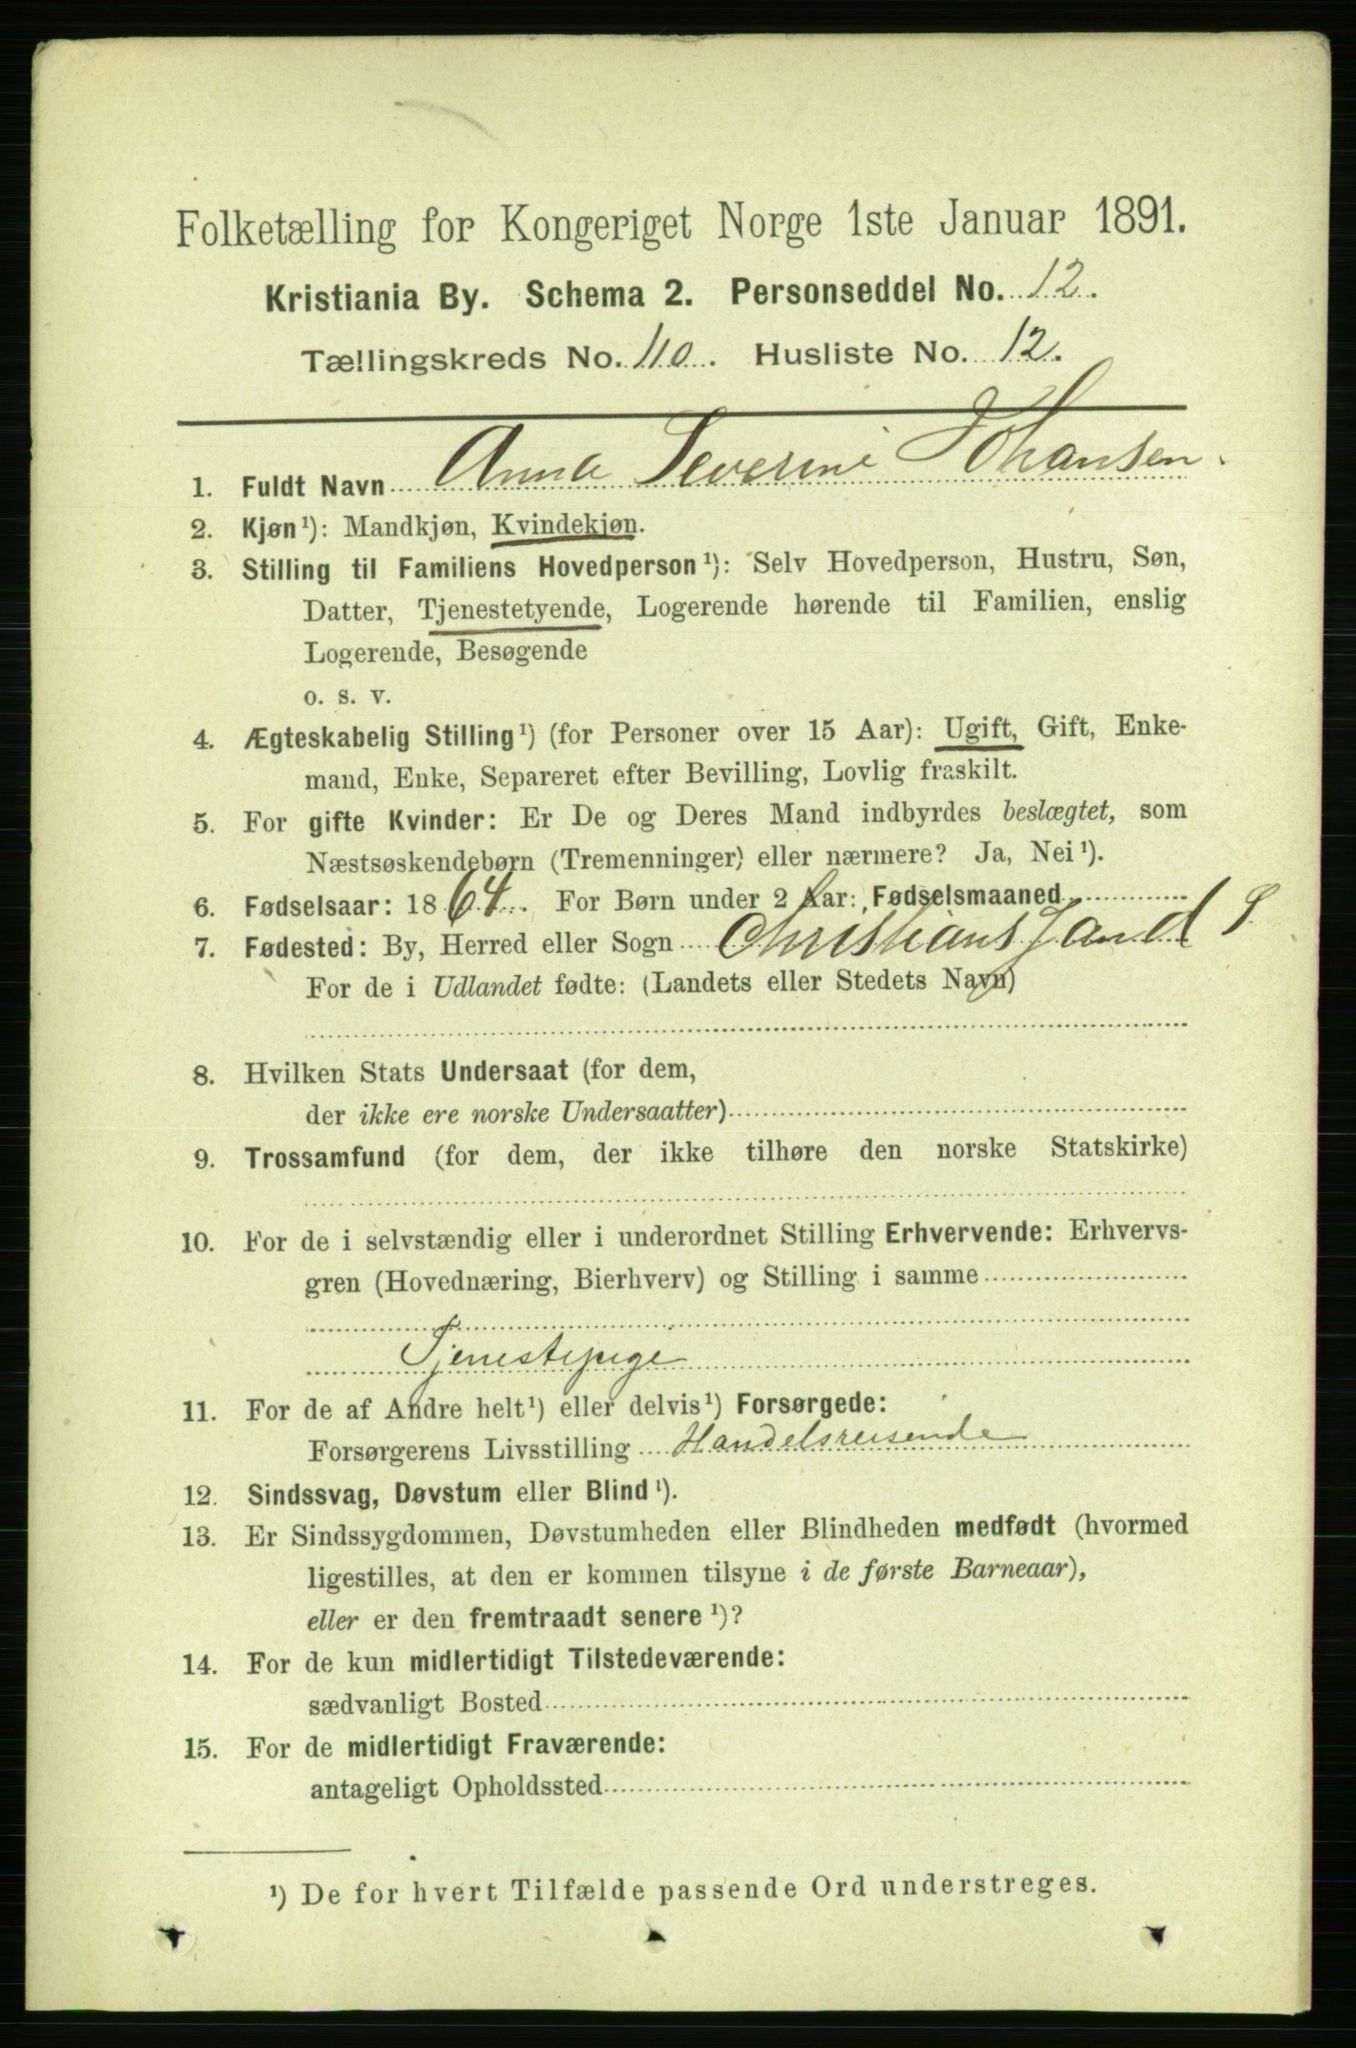 Folketælling for Kongeriget Norge 1ste Januar 1891.
Kristiania By. Schema 2. Personseddel No. 12.
Tællingskreds No. 110. Husliste No. 12.
1. Fuldt Navn Anna Severine Johansen.
2. Kjøn¹): Mandkjøn, Kvindekjøn.
3. Stilling til Familiens Hovedperson¹): Selv Hovedperson, Hustru, Søn,
Datter, Tjenestetyende, Logerende hørende til Familien, enslig
Logerende, Besøgende
o. s. v.
4. Ægteskabelig Stilling¹) (for Personer over 15 Aar): Ugift, Gift, Enke-
mand, Enke, Separeret efter Bevilling, Lovlig fraskilt.
5. For gifte Kvinder: Er De og Deres Mand indbyrdes beslægtet, som
Næstsøskendebørn (Tremenninger) eller nærmere? Ja, Nei¹).
6. Fødselsaar: 1864. For Børn under 2 Aar: Fødselsmaaned
7. Fødested: By, Herred eller Sogn Christiansand S
For de i Udlandet fødte: (Landets eller Stedets Navn)
8. Hvilken Stats Undersaat (for dem,
der ikke ere norske Undersaatter)
9. Trossamfund (for dem, der ikke tilhøre den norske Statskirke)
10. For de i selvstændig eller i underordnet Stilling Erhvervende: Erhvervs-
gren (Hovednæring, Bierhverv) og Stilling i samme
Tjenestepige
11. For de af Andre helt¹) eller delvis¹) Forsørgede:
Forsørgerens Livsstilling Handelsreisende
12. Sindssvag, Døvstum eller Blind¹).
13. Er Sindssygdommen, Døvstumheden eller Blindheden medfødt (hvormed
ligestilles, at den er kommen tilsyne i de første Barneaar),
eller er den fremtraadt senere¹)?
14. For de kun midlertidigt Tilstedeværende:
sædvanligt Bosted
15. For de midlertidigt Fraværende:
antageligt Opholdssted
¹) De for hvert Tilfælde passende Ord understreges.